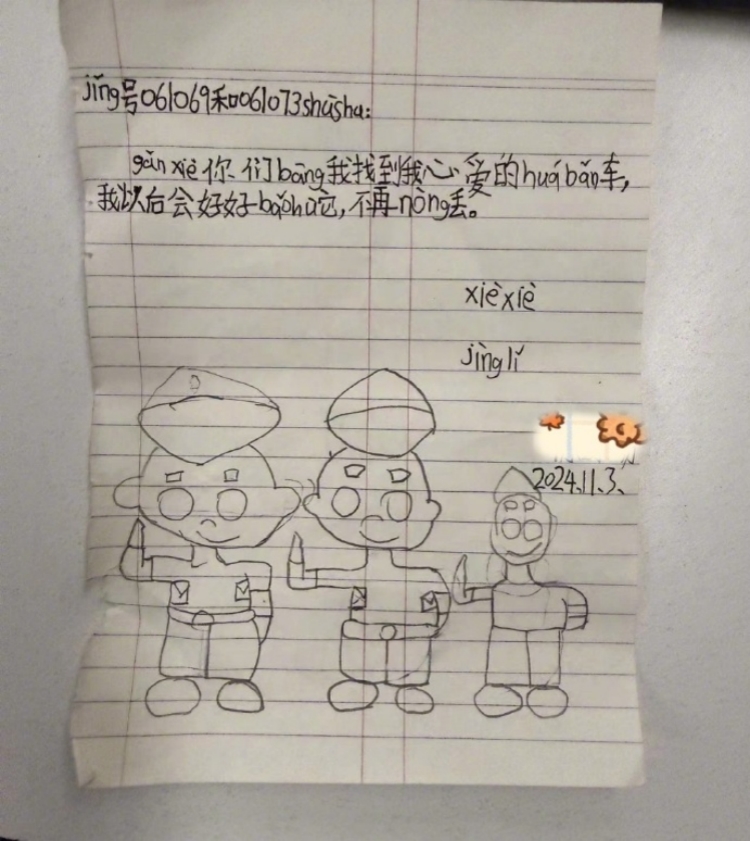 jǐng号061069和061073shūshu:
gǎn xiè你们bāng我找到我心爱的huá bǎn车,
我以后会好好bǎohù它,不再nòng丢。
xièxiè
jìnglǐ
2024.11.3、